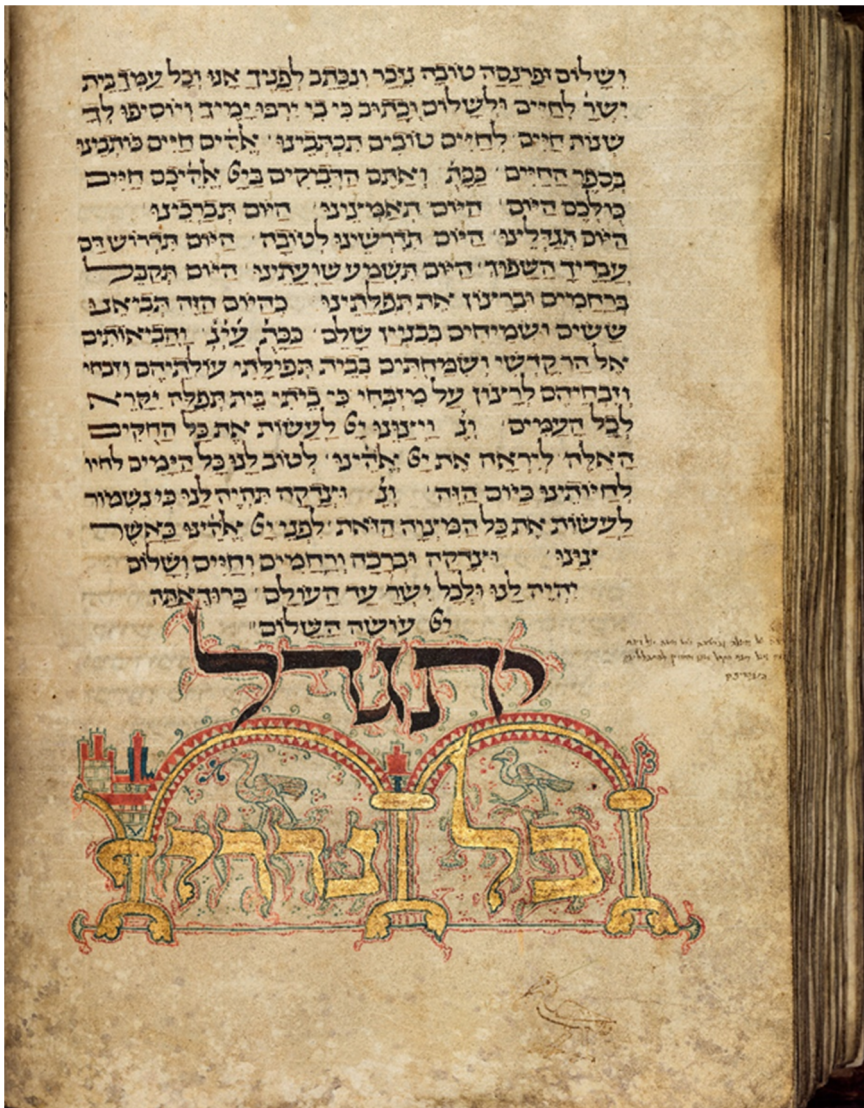 ושלום ופרנסה טובה ניזכר ונכתב לפניך אנו וכל עמך בית
ישר' לחיים ולשלום וכתוב כי בי ירבו ימיך ויוסיפו לך
שנות חיים לחיים טובים תכתבינו אלהים חיים כותבינו
בספר החיים ככת' ואתם הדביקים ביי אלהיכם חיים
כולכם היום היום תאמצינו היום תברכינו
היום תגדלינו היום תדרשינו לטובה היום תדרוש דם
עבדיך השפוך היום תשמע שועתינו היום תקבל
ברחמים וברצון את תפלתינו כהיום הזה תביאנו
ששים ושמיחים בבניין שלם ככת' והביאותים
אל הר קדשי ושמחתים בבית תפילתי עולתיהם וזבחי
וזבחיהם לרצון על מזבחי כי ביתי בית תפלה יקרא
לכל העמים ונ' ויצונו יי לעשות את כל החקים
האלה ליראה את יי אלהינו לטוב לנו כל הימים לחיו
לחיותינו כיום הזה ונ' וצדקה תהיה לנו כי נשמור
לעשות את כל המצוה הזאת לפני יי אלהינו כאשר
צינו וצדקה וברכה ורחמים וחיים ושלום
יהיה לנו ולכל ישר' עד העולם ברוך אתה
יי עושה השלום
יתגדל
כל נדרי